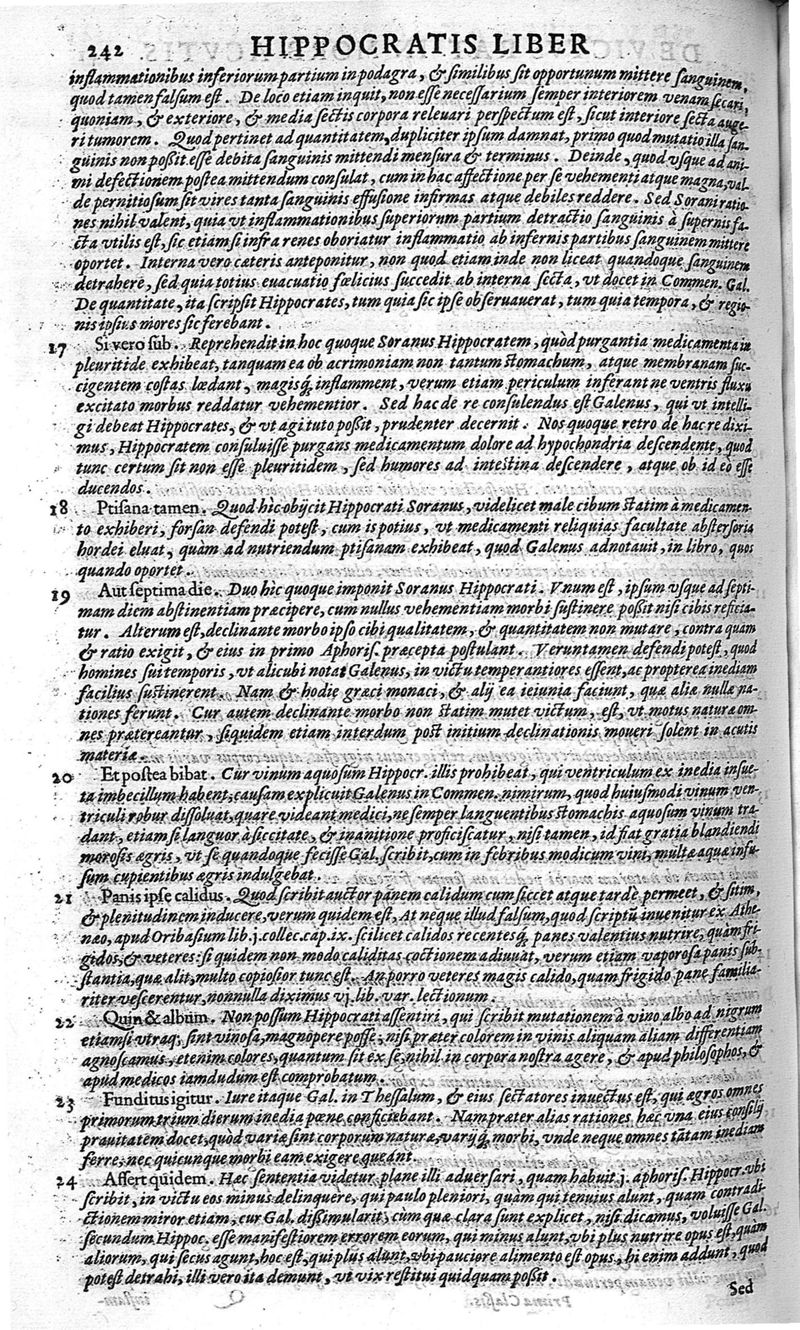 242 HIPPOCRATIS LIBER
inflammationibus inferiorum partium in podagra, & similibus sit opportunum mittere sanguinem,
quod tamen falsum est. De loco etiam inquit, non esse necessarium semper interiorem venam secari,
quoniam, & exteriore, & media sectis corpora releuari perspectum est, sicut interiore secta auge-
ri tumorem. Quod pertinet ad quantitatem, dupliciter ipsum damnat, primo quod mutatio illa san-
guinis non possit esse debita sanguinis mittendi mensura & terminus. Deinde, quod vsque ad ani-
mi defectionem postea mittendum consulat, cum in hac affectione per se vehementi atque magna, val-
de pernitiosum sit vires tanta sanguinis effusione infirmas atque debiles reddere. Sed Sorani ratio-
nes nihil valent, quia vt inflammationibus superiorum partium detractio sanguinis à supernis fa-
cta vtilis est, sic etiam si infra renes oboriatur inflammatio ab infernis partibus sanguinem mittere
oportet. Interna vero cæteris anteponitur, non quod etiam inde non liceat quandoque sanguinem
detrahere, sed quia totius euacuatio fœlicius succedit ab interna secta, vt docet in Commen. Gal.
De quantitate, ita scripsit Hippocrates, tum quia sic ipse obseruauerat, tum quia tempora, & regio-
nis ipsius mores sic ferebant.
17 Si vero sub. Reprehendit in hoc quoque Soranus Hippocratem, quòd purgantia medicamenta in
pleuritide exhibeat, tanquam ea ob acrimoniam non tantum stomachum, atque membranam suc-
cigentem costas lædant, magisq́; inflamment, verum etiam periculum inferant ne ventris fluxu
excitato morbus reddatur vehementior. Sed hac de re consulendus est Galenus, qui vt intelli-
gi debeat Hippocrates, & vt agi tuto possit, prudenter decernit. Nos quoque retro de hac re dixi-
mus, Hippocratem consuluisse purgans medicamentum dolore ad hypochondria descendente, quod
tunc certum sit non esse pleuritidem, sed humores ad intestina descendere, atque ob id eo esse
ducendos.
18 Ptisana tamen. Quod hìc obijcit Hippocrati Soranus, videlicet male cibum statim à medicamen-
to exhiberi, forsan defendi potest, cum is potius, vt medicamenti reliquias facultate abstersoria
hordei eluat, quàm ad nutriendum ptisanam exhibeat, quod Galenus adnotauit, in libro, quos
quando oportet.
19 Aut septima die. Duo hìc quoque imponit Soranus Hippocrati. Vnum est, ipsum vsque ad septi-
mam diem abstinentiam præcipere, cum nullus vehementiam morbi sustinere possit nisi cibis reficia-
tur. Alterum est, declinante morbo ipso cibi qualitatem, & quantitatem non mutare, contra quàm
& ratio exigit, & eius in primo Aphoris. præcepta postulant. Veruntamen defendi potest, quod
homines sui temporis, vt alicubi notat Galenus, in victu temperantiores essent, ac propterea inediam
facilius sustinerent. Nam & hodie græci monaci, & alij ea ieiunia faciunt, quæ aliæ nullæ na-
tiones ferunt. Cur autem declinante morbo non statim mutet victum, est, vt motus naturæ om-
nes prætereantur, siquidem etiam interdum post initium declinationis moueri solent in acutis
materiæ.
20 Et postea bibat. Cur vinum aquosum Hippocr. illis prohibeat, qui ventriculum ex inedia insue-
ta imbecillum habent, causam explicuit Galenus in Commen. nimirum, quod huiusmodi vinum ven-
triculi robur dissoluat, quare videant medici, ne semper languentibus stomachis aquosum vinum tra-
dant, etiam si languor à siccitate, & inanitione proficiscatur, nisi tamen, id fiat gratia blandiendi
morosis ægris, vt se quandoque fecisse Gal. scribit, cum in febribus modicum vini, multæ aquæ infu-
sum cupientibus ægris indulgebat.
21 Panis ipse calidus. Quod scribit auctor panem calidum cum siccet atque tardè permeet, & sitim,
& plenitudinem inducere, verum quidem est, At neque illud falsum, quod scriptũ inuenitur ex Athe-
næo, apud Oribasium lib. j. collec. cap. ix. scilicet calidos recentesq́; panes valentius nutrire, quàm fri-
gidos, & veteres: siquidem non modo caliditas coctionem adiuuat, verum etiam vaporosa panis sub-
stantia, quæ alit, multo copiosior tunc est. An porro veteres magis calido, quam frigido pane familia-
riter vescerentur, nonnulla diximus vj. lib. var. lectionum.
22 Quin & album. Non possum Hippocrati assentiri, qui scribit mutationem à vino albo ad nigrum
etiam si vtraq; sint vinosa, magnopere posse, nisi præter colorem in vinis aliquam aliam differentiam
agnoscamus, etenim colores, quantum sit ex se, nihil in corpora nostra agere, & apud philosophos, &
apud medicos iamdudum est comprobatum.
23 Funditus igitur. Iure itaque Gal. in Thessalum, & eius sectatores inuectus est, qui agros omnes
primorum trium dierum inedia pœne conficiebant. Nam præter alias rationes hæc vna eius consilij
prauitatem docet, quod variæ sint corporum naturæ, varijq́; morbi, vnde neque omnes tātam inediam
ferre, nec quicunque morbi eam exigere queant.
24 Affert quidem. Hæc sententia videtur plane illi aduersari, quam habuit j. aphoris. Hippocr. vbi
scribit, in victu eos minus delinquere, qui paulo pleniori, quàm qui tenuius alunt, quam contradi-
ctionem miror etiam, cur Gal. dissimularit, cum quæ clara sunt explicet, nisi dicamus, voluisse Gal.
secundum Hippoc. esse manifestiorem errorem eorum, qui minus alunt, vbi plus nutrire opus est, quàm
aliorum, qui secus agunt, hoc est, qui plus alunt, vbi pauciore alimento est opus, hi enim addunt, quod
potest detrahi, illi vero ita demunt, vt vix restitui quidquam possit.
Sed